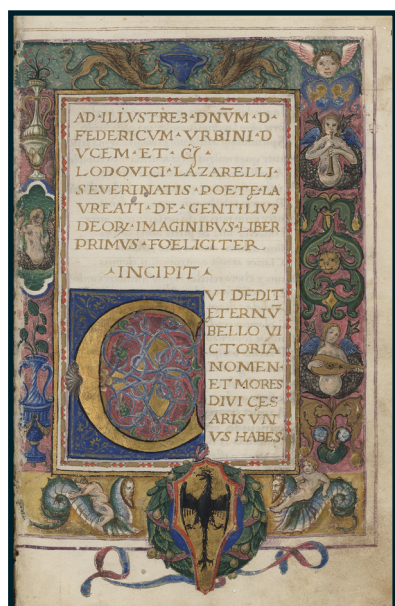 AD·ILLVSTREƷ·DNŪM·D·
FEDERICVM·VRBINI·D
VCEM·ET·Cꝫ
LODOVICI·LAZARELLI·
SEVERINATIS·POETE·LA
VREATI·DE·GENTILIVƷ
DEORꝜ·IMAGINIBVS·LIBER
PRIMVS·FOELICITER
·INCIPIT·
CVI DEDIT
ETERNŪ
BELLO VI
CTORIA
NOMEN·
ET MORES
DIVI CES
ARIS VN
VS HABES·